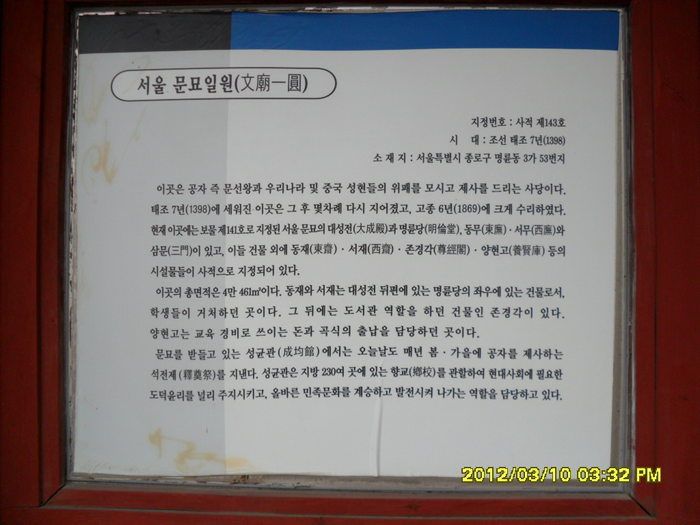 서울 문묘일원(文廟一圓)
지정번호 : 사적 제143호
시 대 : 조선 태조 7년(1398)
소 재 지 : 서울특별시 종로구 명륜동 3가 53번지
이곳은 공자 즉 문선왕과 우리나라 및 중국 성현들의 위패를 모시고 제사를 드리는 사당이다.
태조 7년(1398)에 세워진 이곳은 그 후 몇차례 다시 지어졌고, 고종 6년(1869)에 크게 수리하였다.
현재 이곳에는 보물 제141호로 지정된 서울 문묘의 대성전(大成殿)과 명륜당(明倫堂), 동무(東廡)·서무(西廡)와
삼문(三門)이 있고, 이들 건물 외에 동재(東齋)·서재(西齋)·존경각(尊經閣)·양현고(養賢庫) 등의
시설물들이 사적으로 지정되어 있다.
이곳의 총면적은 4만 461㎡이다. 동재와 서재는 대성전 뒤편에 있는 명륜당의 좌우에 있는 건물로서,
학생들이 거처하던 곳이다. 그 뒤에는 도서관 역할을 하던 건물인 존경각이 있다.
양현고는 교육 경비로 쓰이는 돈과 곡식의 출납을 담당하던 곳이다.
문묘를 받들고 있는 성균관(成均館)에서는 오늘날도 매년 봄·가을에 공자를 제사하는
석전제(釋奠祭)를 지낸다. 성균관은 지방 230여 곳에 있는 향교(鄕校)를 관할하여 현대사회에 필요한
도덕윤리를 널리 주지시키고, 올바른 민족문화를 계승하고 발전시켜 나가는 역할을 담당하고 있다.
2012/03/10 03:32 PM